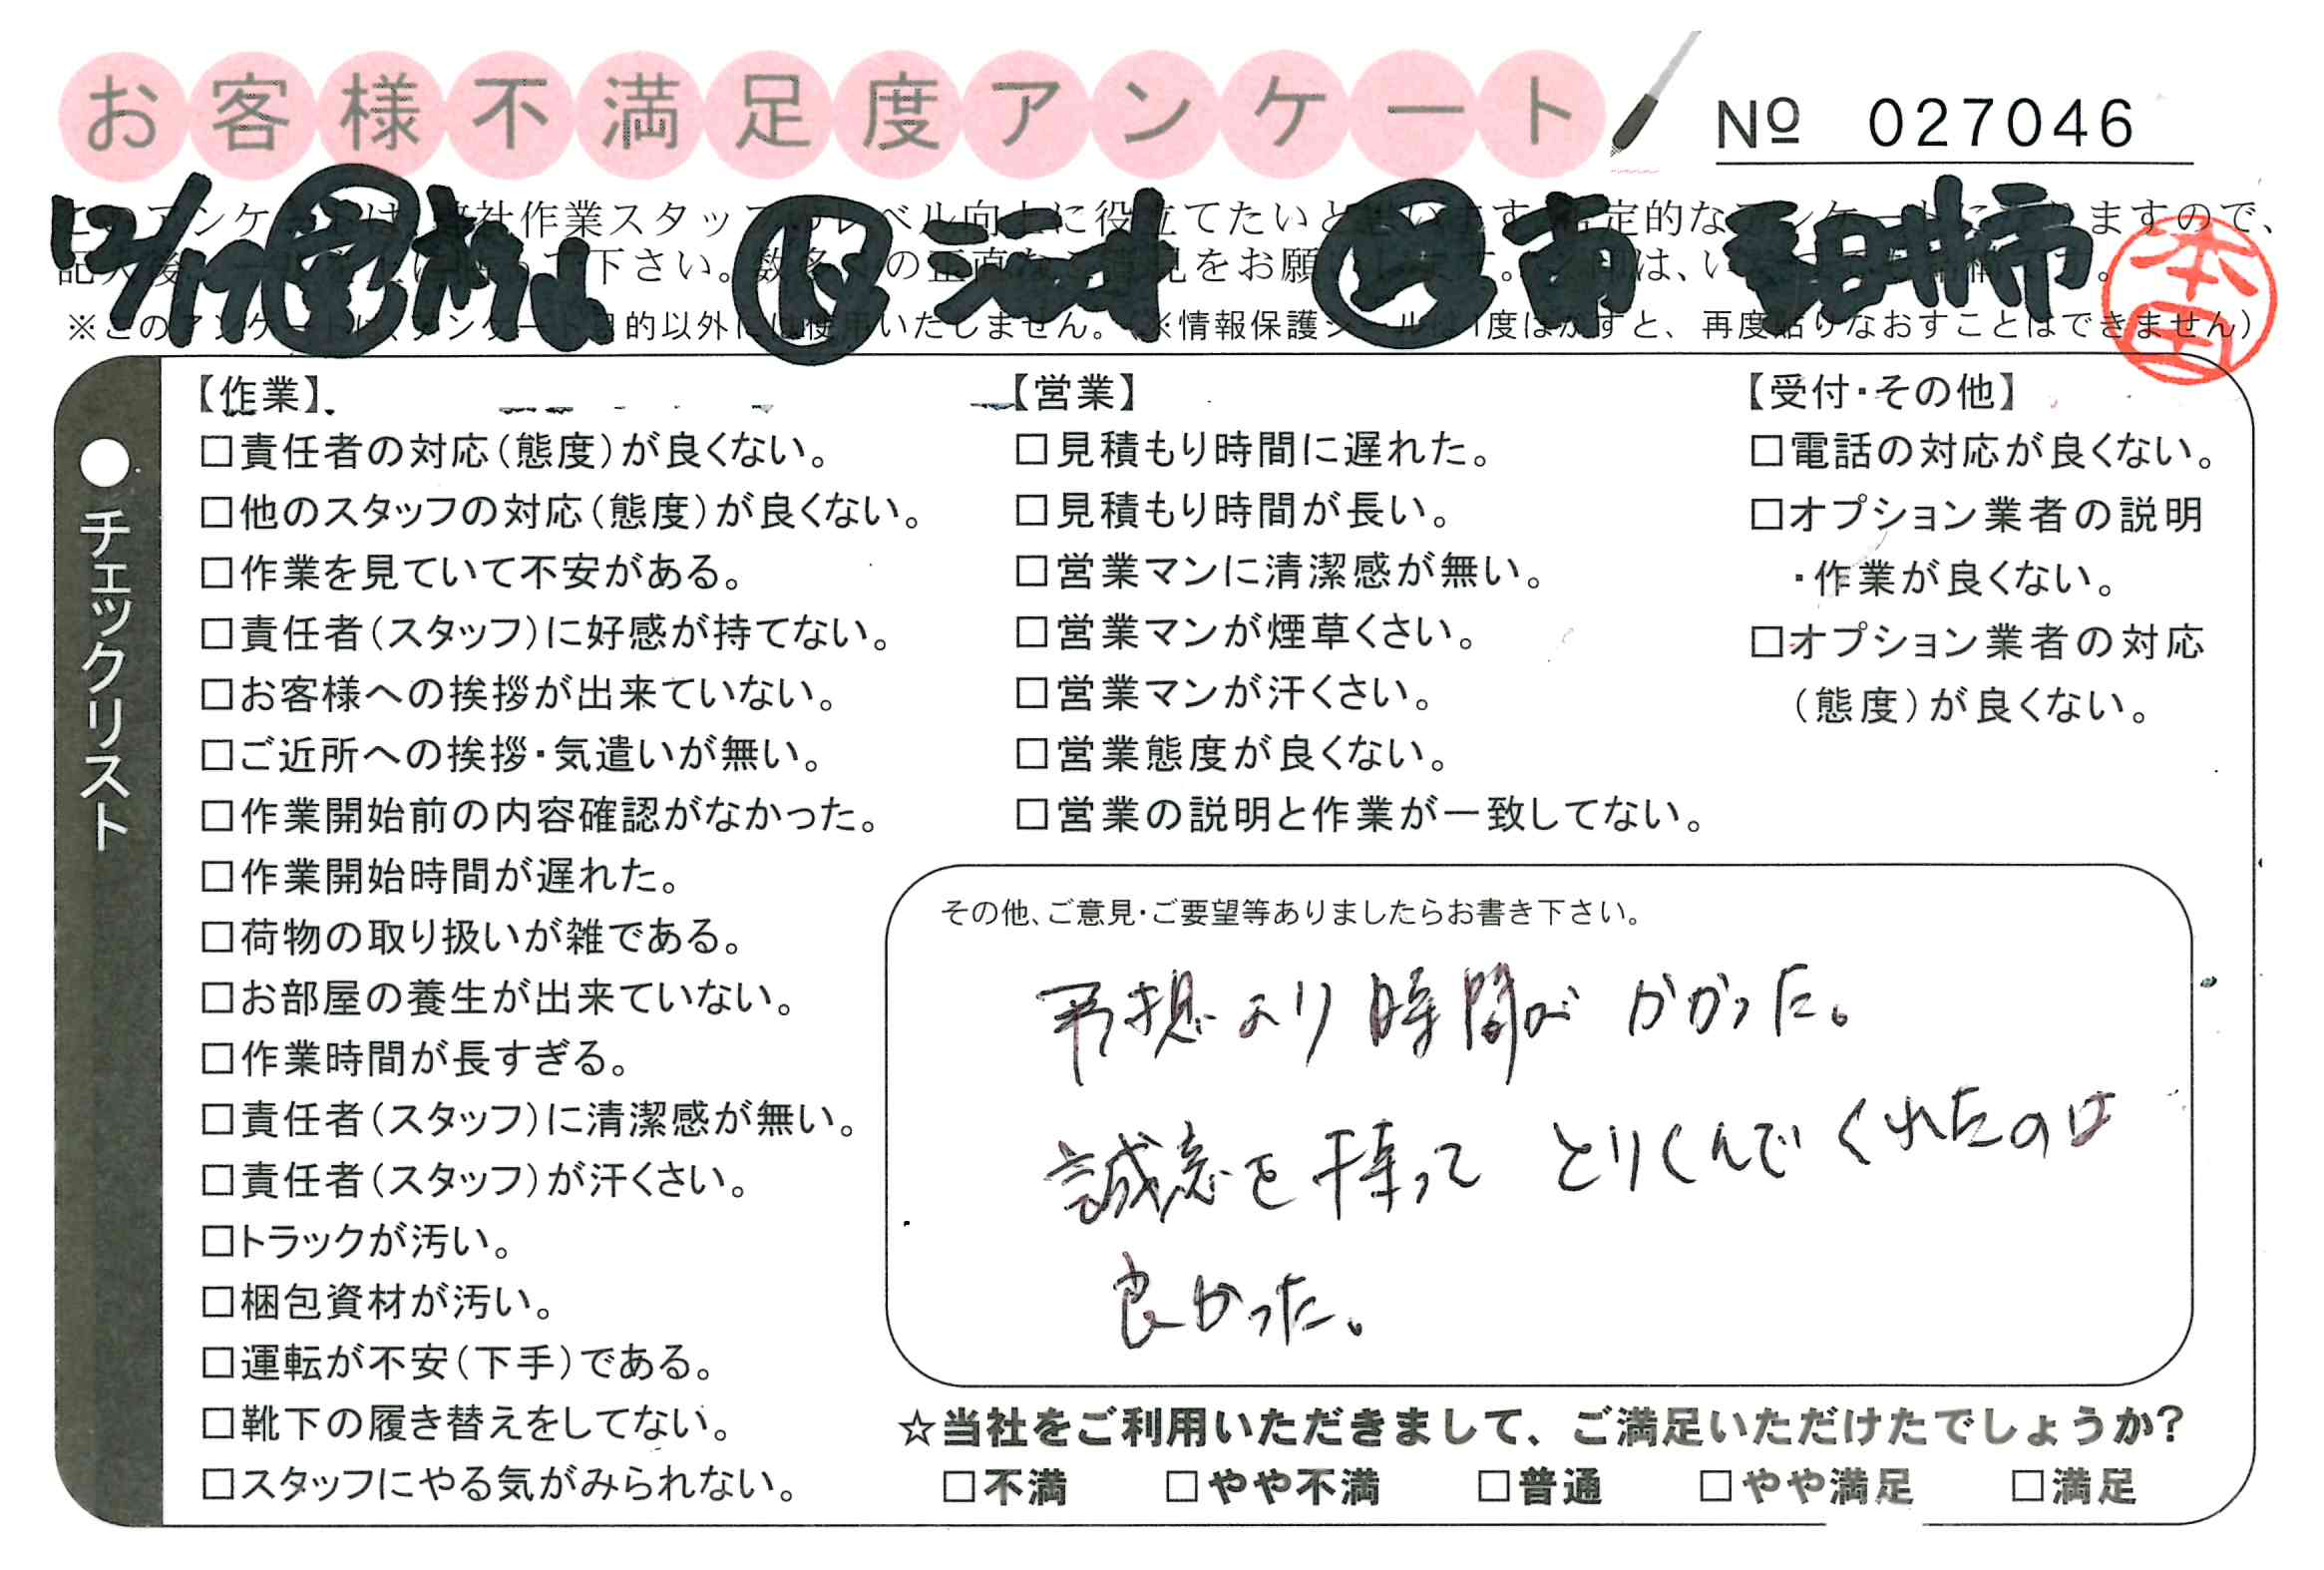 お客様不満足度アンケート
№ 027046
12/17 営 松山 リ 三木 南 春日井市
本田
※このアンケートは、アンケート目的以外には使用いたしません。(※情報保護シールは1度はがすと、再度貼りなおすことはできません)
●チェックリスト
【作業】
□責任者の対応(態度)が良くない。
□他のスタッフの対応(態度)が良くない。
□作業を見ていて不安がある。
□責任者(スタッフ)に好感が持てない。
□お客様への挨拶が出来ていない。
□ご近所への挨拶・気遣いが無い。
□作業開始前の内容確認がなかった。
□作業開始時間が遅れた。
□荷物の取り扱いが雑である。
□お部屋の養生が出来ていない。
□作業時間が長すぎる。
□責任者(スタッフ)に清潔感が無い。
□責任者(スタッフ)が汗くさい。
□トラックが汚い。
□梱包資材が汚い。
□運転が不安(下手)である。
□靴下の履き替えをしてない。
□スタッフにやる気がみられない。
【営業】
□見積もり時間に遅れた。
□見積もり時間が長い。
□営業マンに清潔感が無い。
□営業マンが煙草くさい。
□営業マンが汗くさい。
□営業態度が良くない。
□営業の説明と作業が一致してない。
【受付・その他】
□電話の対応が良くない。
□オプション業者の説明
・作業が良くない。
□オプション業者の対応
(態度)が良くない。
その他、ご意見・ご要望等ありましたらお書き下さい。
予想より時間がかかった。
誠意を持ってとりくんでくれたのは
良かった。
☆当社をご利用いただきまして、ご満足いただけたでしょうか?
□不満 □やや不満 □普通 □やや満足 □満足